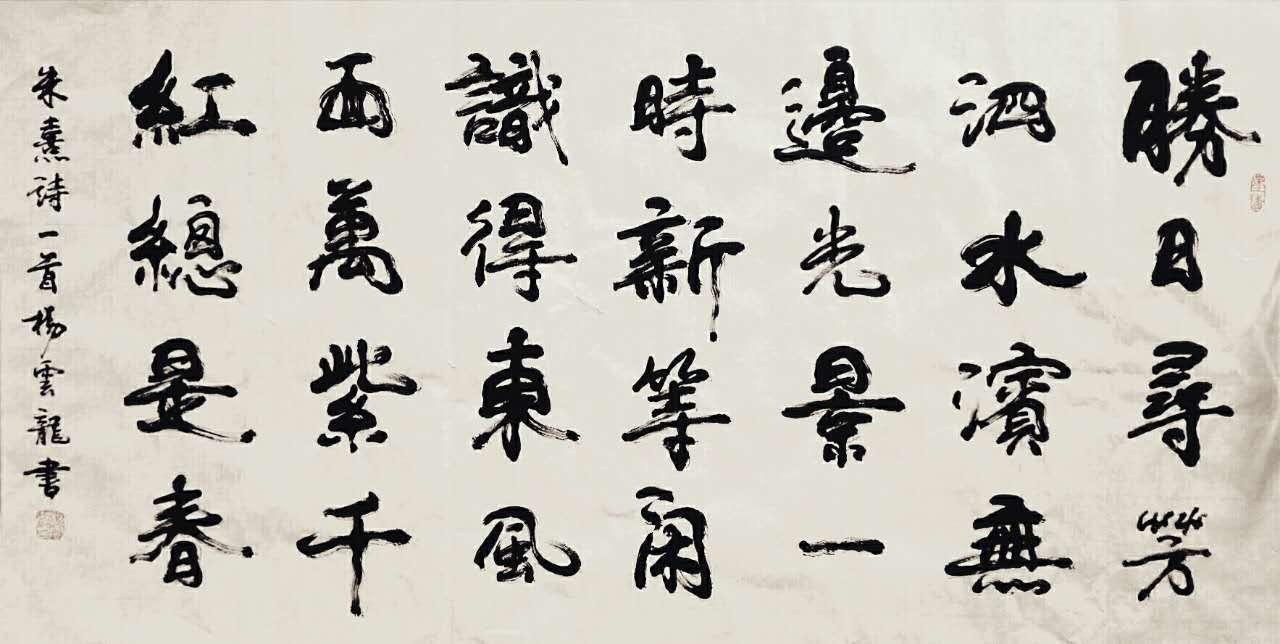 勝日尋芳
泗水濱無
邊光景一
時新等閑
識得東風
面萬紫千
紅總是春
朱熹詩一首楊雲龍書